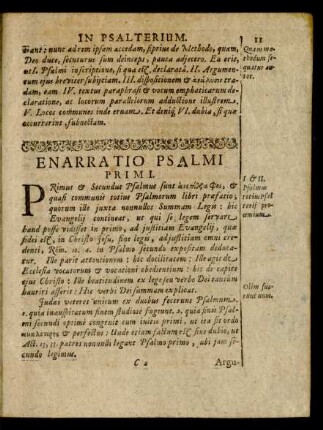 IN PSALTERIUM. 11
nunc ad rem ipsam accedam, si prius de Methodo, quam,
Deo duce, secuturus sum deinceps, pauca adjecero. Ea erit,
ut I. Psalmi inscriptione, si qua est, declaratâ. II. Argumen-
tum ejus breviter subjiciam. III. dispositionem & tra-
dam, eam IV. textus paraphrasi & vocum emphaticarum de-
claratione, ac locorum parallelorum adductione illustrem,
V. Locos communes inde eruam. Et deniq; VI. dubia, si qua
occurrerint, subnectam.
Quam me-
thodum se-
quatur au-
tor.
ENARRATIO PSALMI
PRIMI.
PRimus & Secundus Psalmus sunt &
quasi communis totius Psalmorum libri præfatio:
quorum ille juxta nonnullos Summam Legis: hic
Evangelij contineat, ut qui se legem servare
haud posse vidisset in primo, ad justitiam Evangelij, quæ
fidei est, in Christo Jesu, fine legis, ad justitiam omni cre-
denti, Rom. 10. 4. in Psalmo secundo expositam deduca-
tur. Ille parit attentionem: hic docilitatem: Ille agit de
Ecclesia vocatorum & vocationi obedientium: hic de capite
ejus Christo: Ille beatitudinem ex legis seu verbo Dei tantum
hauriri asserit: Hic verbi Dei summam explicat.
I & II.
Psalmus
totius Psal-
terij pro-
œmium.
Judæi veteres unum ex duobus fecerunt Psalmum,
1. quia inauspicatum finem studiosè fugerunt. 2. quia finis Psal-
mi secundi optimè congruit cum initio primi, ut ita sit orbis
& perfectus: Unde etiam factum est sine dubio, ut
Act. 13, 33. patres nonnulli legant Psalmo primo, ubi jam se-
cundo legimus.
Olim fue-
runt unus.
C 2 Argu-